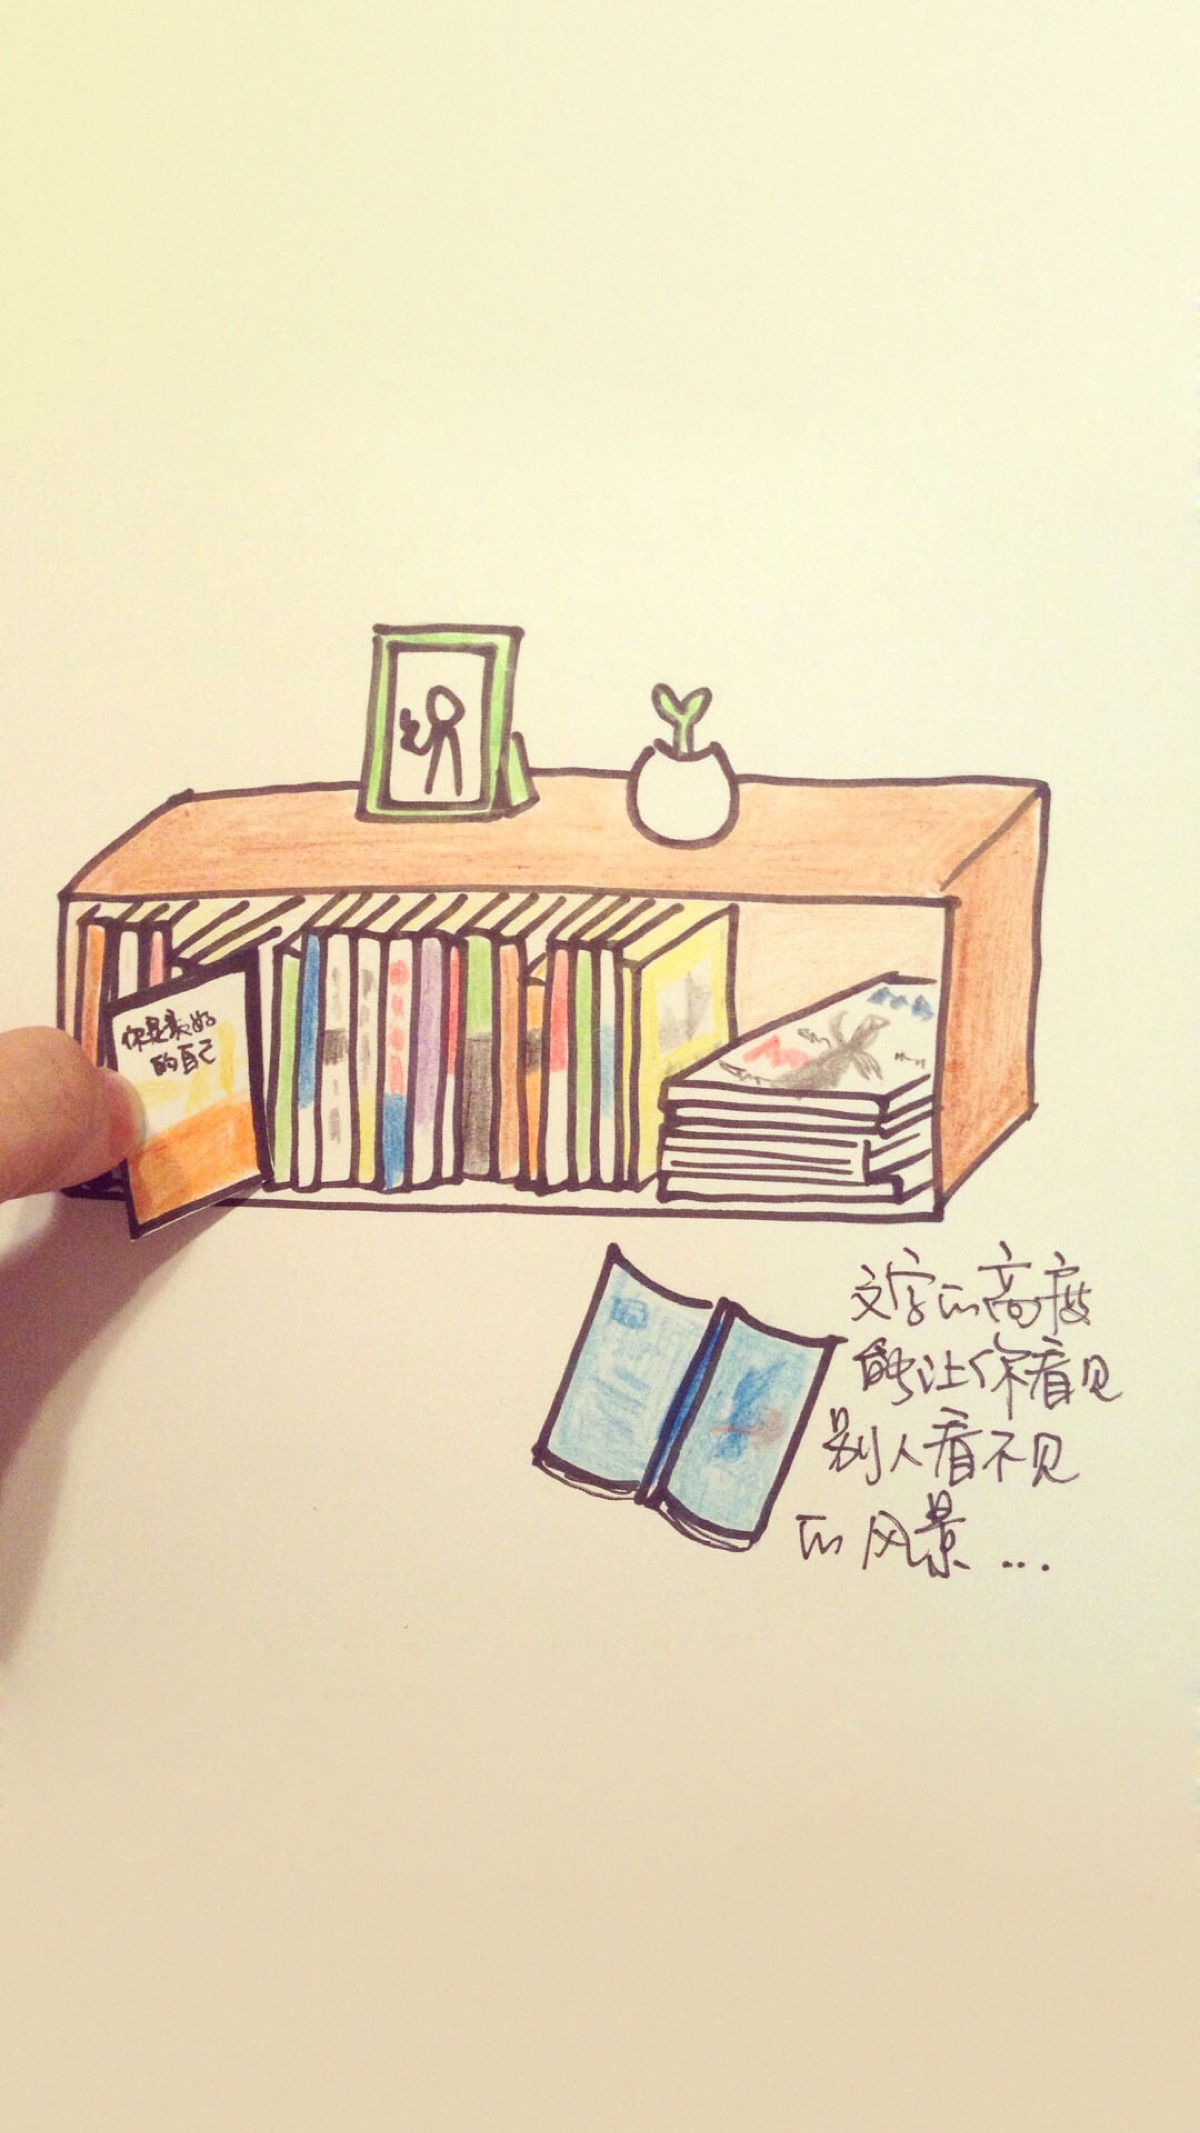 你是最好
的自己
文字的高度
能让你看见
别人看不见
的风景...